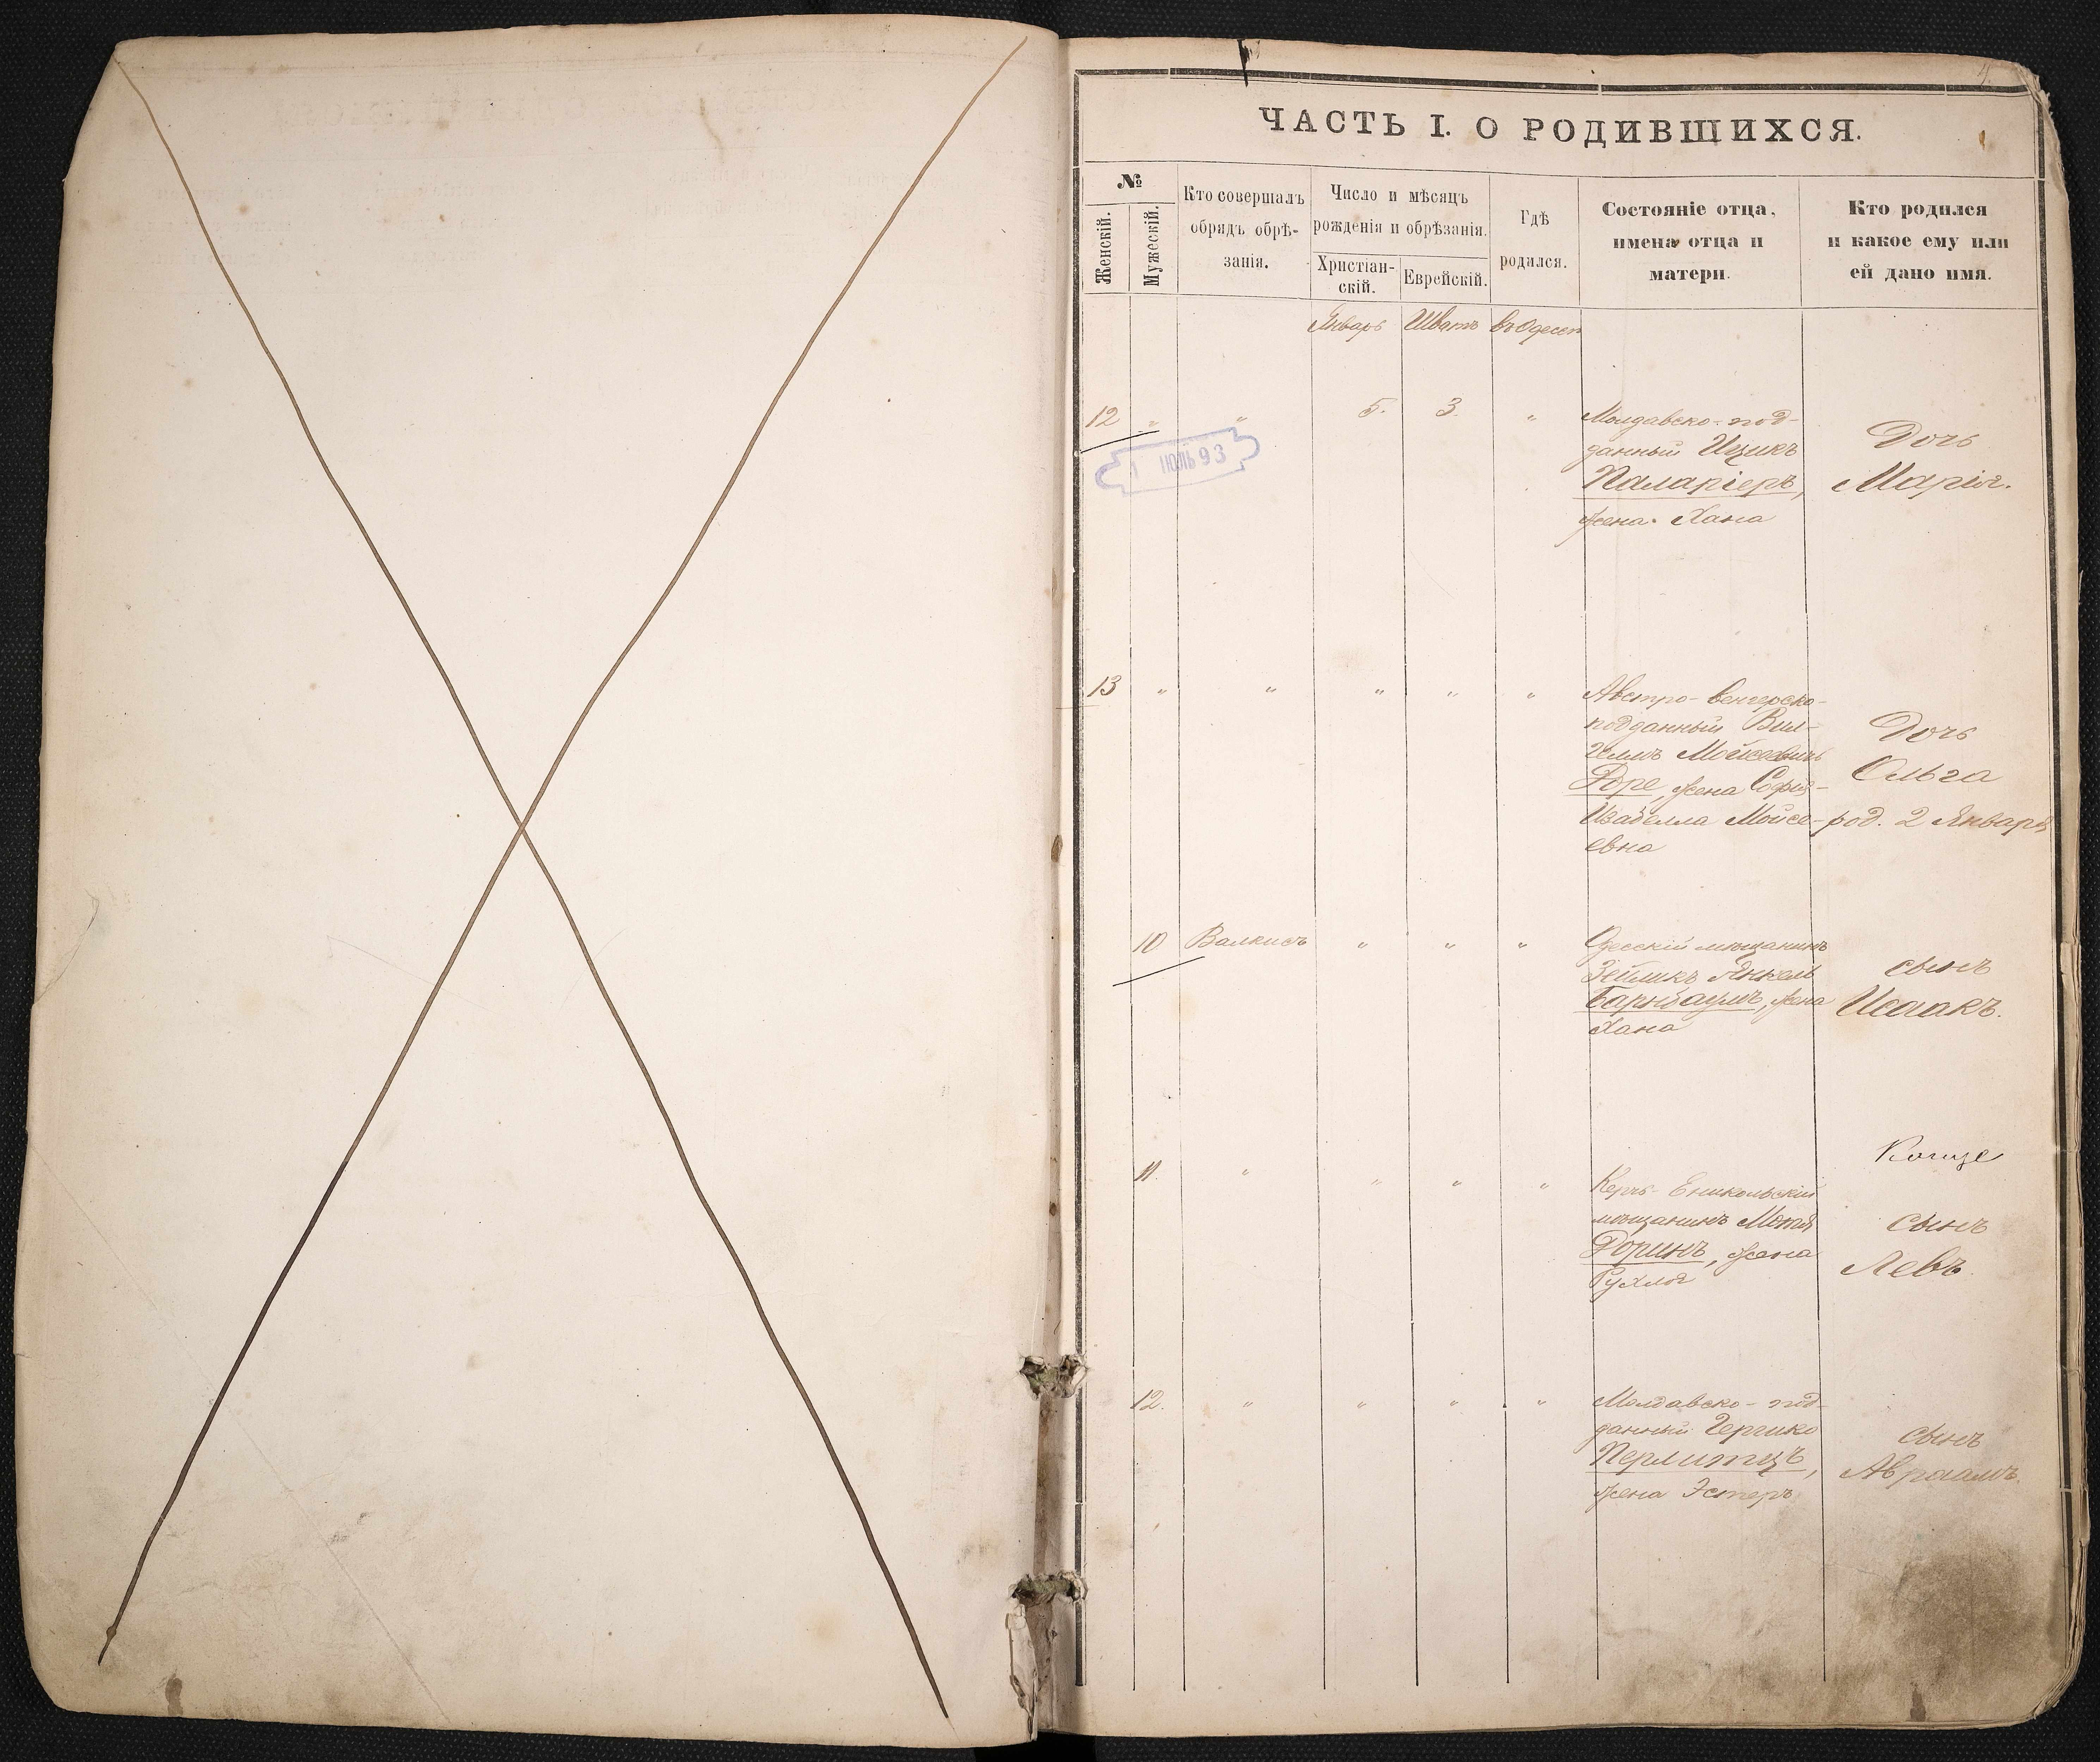 4.
ЧАСТЬ I. О РОДИВШИХСЯ.
№
Женскій.
Мужескій.
Кто совершалъ
обрядъ обрѣ-
занія.
Число и мѣсяцъ
рожденія и обрѣзанія.
Христіан-
скій.
Еврейскій.
Гдѣ
родился.
Состояніе отца,
имена отца и
матери.
Кто родился
и какое ему или
ей дано имя.
Январь Шватъ въ Одессѣ
12 „ „ 5. 3. „
Молдавско-под-
данный Ицикъ
Паларіеръ,
жена Хана
Дочь
Марія.
1 ІЮЛЬ 93
13 „ „ „ „ „
Австро-венгерско-
подданный Виль-
гельмъ Мойсеевичъ
Горе, жена Софія-
Изабелла Мойсе-
евна
Дочь
Ольга
род. 2 Января
10 Валкисъ „ „ „
Одесскій мѣщанинъ
Зейликъ Янкель
Барнбаумъ, жена
Хана
сынъ
Исаакъ.
11. „ „ „ „
Керчь-Еникольскій
мѣщанинъ Мотя
Горинъ, жена
Рухля
сынъ
Левъ.
12. „ „ „ „
Молдавско-под-
данный Гершко
Перлитцъ,
жена Эстеръ
сынъ
Авраамъ.